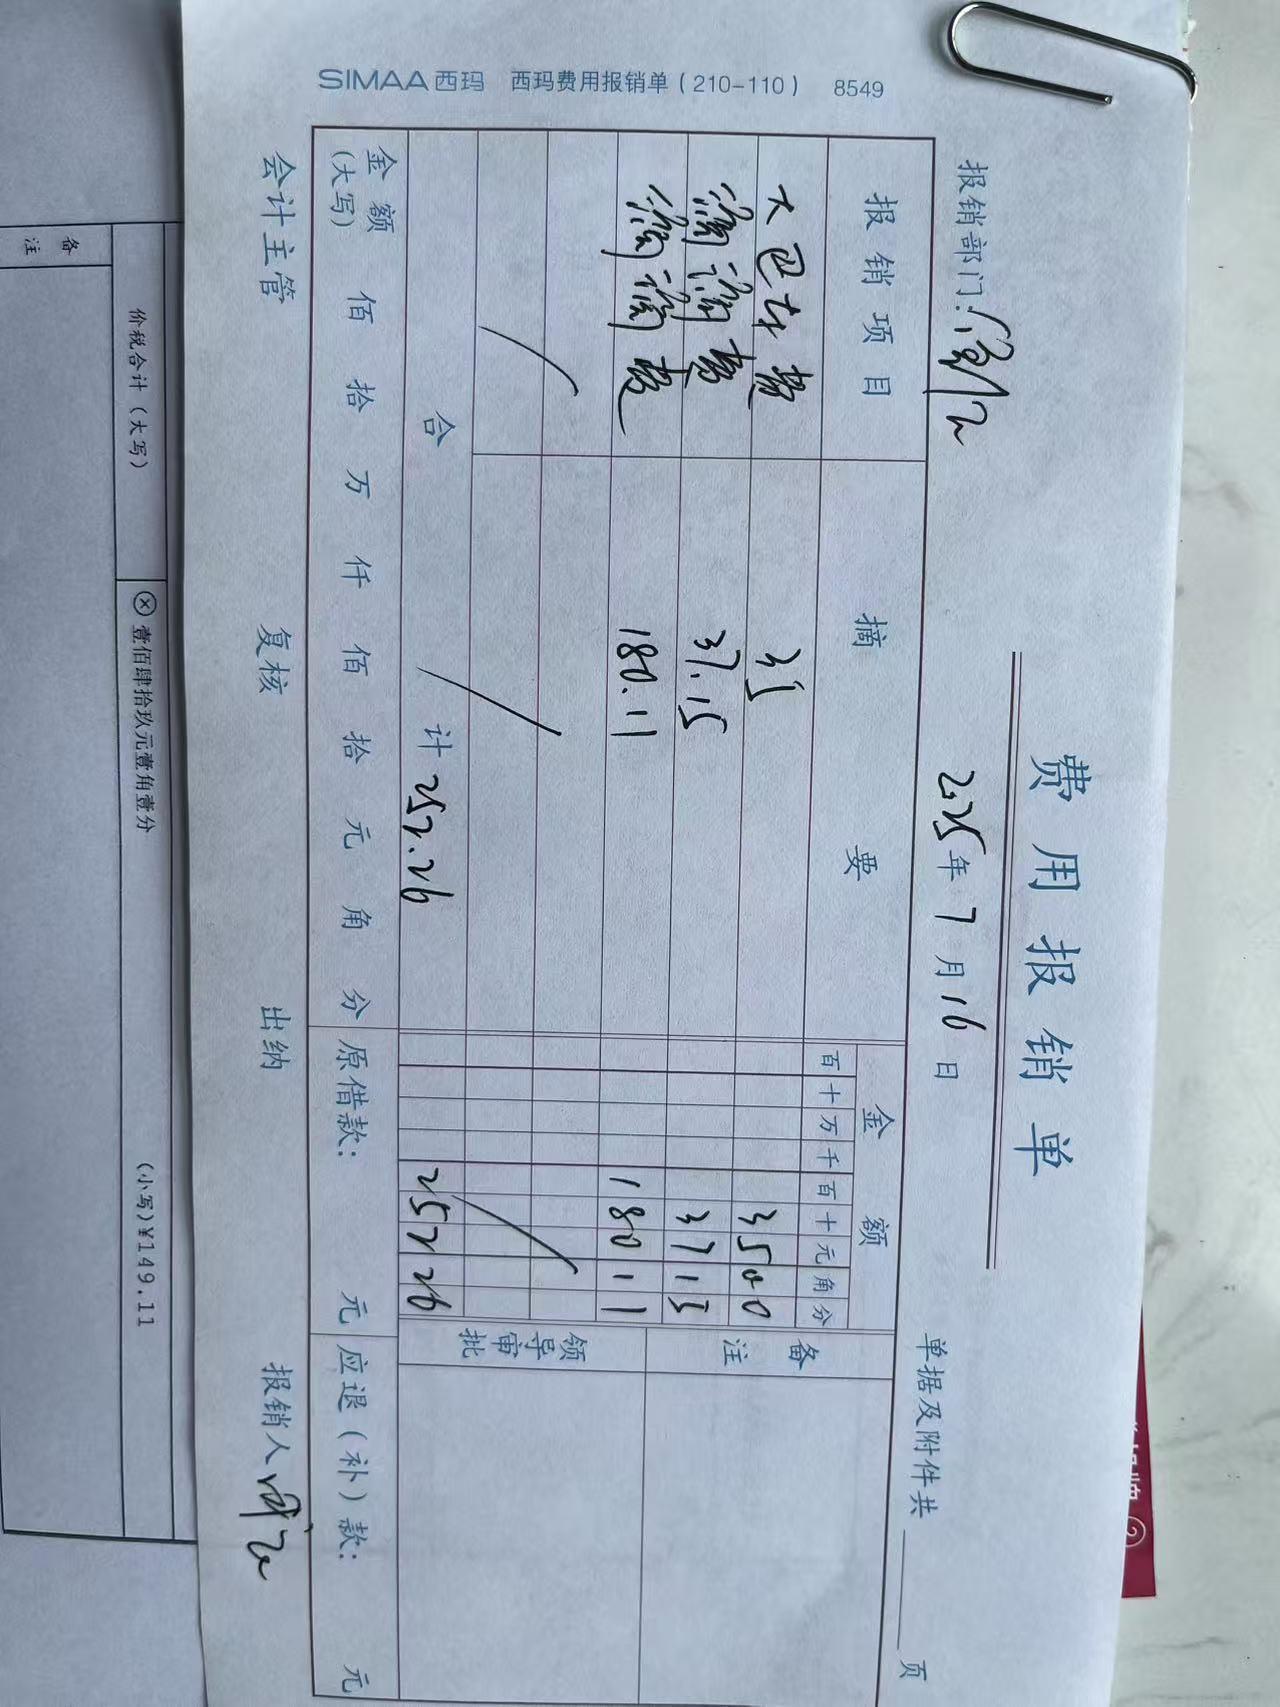 费用报销单
报销部门: 2025年7月16日 单据及附件共 页
报销项目 摘要 金额 备注
百十万千百十元角分
大巴车费 35 3500
滴滴费 37.15 3715
滴滴费 180.11 18011
领导审批
合计 252.26 25226
金额(大写) 佰 拾 万 仟 佰 拾 元 角 分 原借款: 元 应退(补)款: 元
会计主管 复核 出纳 报销人
SIMAA 西玛 西玛费用报销单(210-110) 8549
价税合计(大写) ⊗壹佰肆拾玖元壹角壹分 (小写)¥149.11
备注